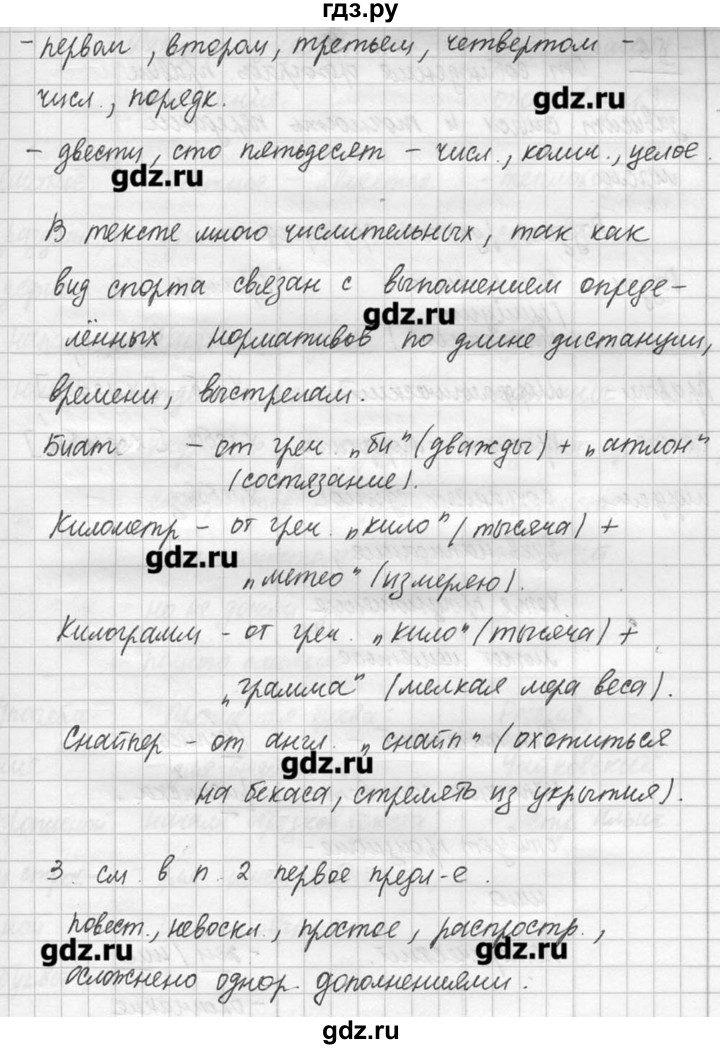 гдз.ру
- первом, втором, третьем, четвертом -
числ., порядк.
gdz.ru
- двести, сто пятьдесят - числ., колич., целое.
gdz.ru
В тексте много числительных, так как
вид спорта связан с выполнением опреде-
gdz.ru
лённых нормативов по длине дистанции,
времени, выстрелам.
Биат. - от греч. „би" (дважды) + „атлон"
(состязание).
Километр - от греч. „кило" (тысяча) +
gdz.ru
„метео" (измеряю).
Килограмм - от греч. „кило" (тысяча) +
„грамма" (мелкая мера веса).
Снайпер - от англ. „снайп" (охотиться
gdz.ru
на бекаса, стрелять из укрытия).
3. см. в п. 2 первое предл-е.
повест., невоскл., простое, распростр.,
gdz.ru gdz.ru
осложнено однор. дополнениями.
gdz.ru